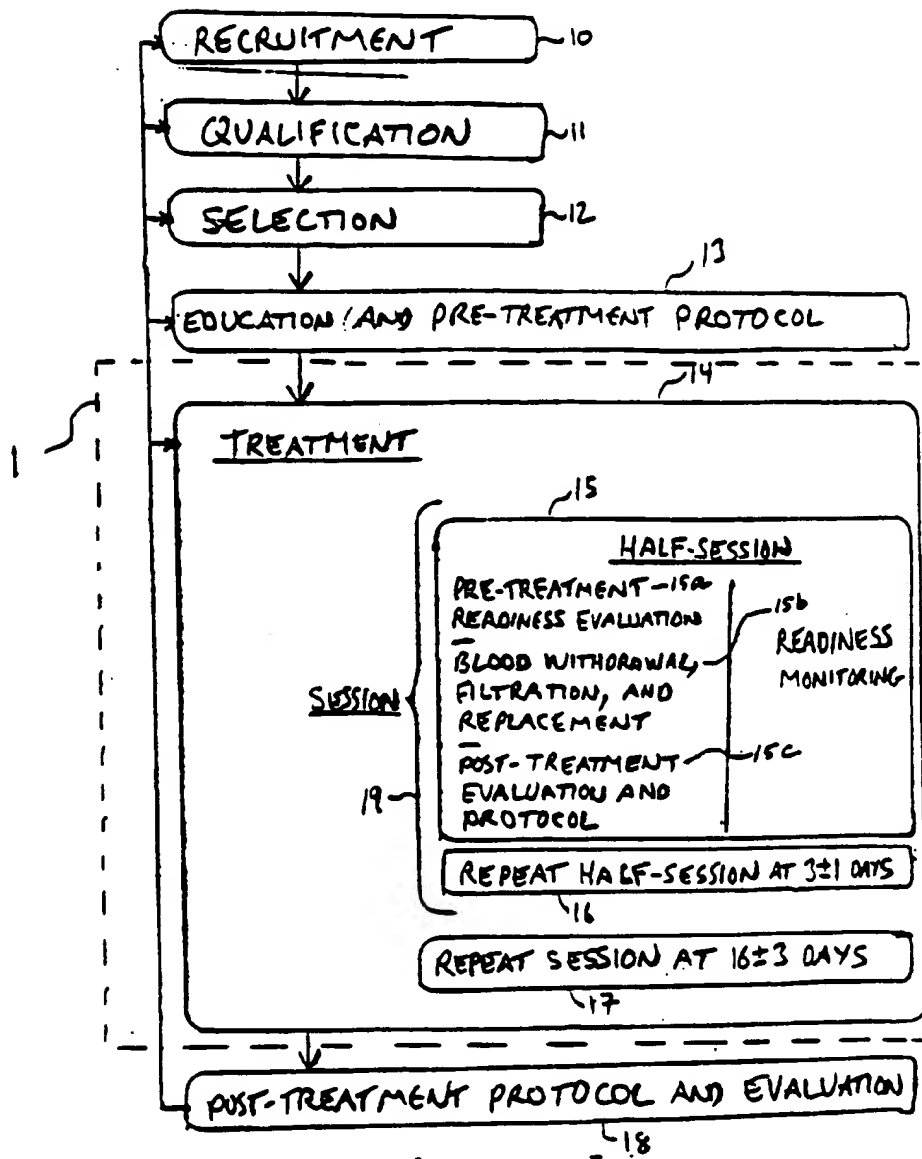 RECRUITMENT 10
QUALIFICATION 11
SELECTION 12
13
EDUCATION AND PRE-TREATMENT PROTOCOL
14
1
TREATMENT
15
HALF-SESSION
PRE-TREATMENT 15a
READINESS EVALUATION
15b
BLOOD WITHDRAWAL,
FILTRATION, AND
REPLACEMENT
READINESS
MONITORING
SESSION
POST-TREATMENT 15c
EVALUATION AND
PROTOCOL
19
REPEAT HALF-SESSION AT 3±1 DAYS
16
REPEAT SESSION AT 16±3 DAYS
17
POST-TREATMENT PROTOCOL AND EVALUATION
18